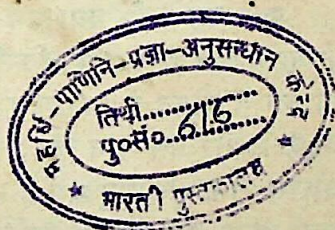 महर्षि-पाणिनि-प्रज्ञा-अनुसन्धान केन्द्र
तिथी..............
पु०सं०. 616
* भारती पुस्तकालय *